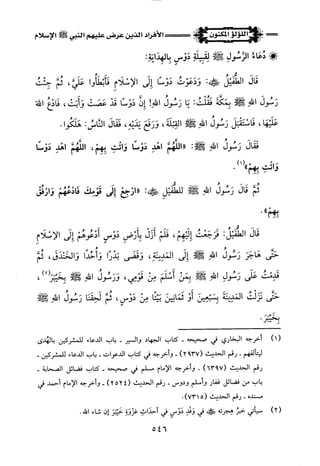 اللؤلؤ المكنون
الأفراد الذين عرض عليهم النبي ﷺ الإسلام
دُعَاءُ الرَّسُولِ ﷺ لِقَبِيلَةِ دَوْسٍ بِالهِدَايَةِ:
قَالَ الطُّفَيْلُ ﷺ: وَدَعَوْتُ دَوْسًا إِلَى الإِسْلَامِ فَأَبْطَأُوا عَلَيَّ، ثُمَّ جِئْتُ
رَسُولَ اللهِ ﷺ بِمَكَّةَ فَقُلْتُ: يَا رَسُولَ اللهِ! إِنَّ دَوْسًا قَدْ عَصَتْ وَأَبَتْ، فَادْعُ اللهَ
عَلَيْهَا، فَاسْتَقْبَلَ رَسُولُ اللهِ ﷺ القِبْلَةَ، وَرَفَعَ يَدَيْهِ، فَقَالَ النَّاسُ: هَلَكُوا.
فَقَالَ رَسُولُ اللهِ ﷺ: «اللَّهُمَّ اهْدِ دَوْسًا وَائْتِ بِهِمْ، اللَّهُمَّ اهْدِ دَوْسًا
وَائْتِ بِهِمْ»(١).
ثُمَّ قَالَ رَسُولُ اللهِ ﷺ لِلطُّفَيْلِ ﷺ: «ارْجِعْ إِلَى قَوْمِكَ فَادْعُهُمْ وَارْفُقْ
بِهِمْ».
قَالَ الطُّفَيْلُ: فَرَجَعْتُ إِلَيْهِمْ، فَلَمْ أَزَلْ بِأَرْضِ دَوْسٍ أَدْعُوهُمْ إِلَى الإِسْلَامِ
حَتَّى هَاجَرَ رَسُولُ اللهِ ﷺ إِلَى المَدِينَةِ، وَقَضَى بَدْرًا وَأُحُدًا وَالخَنْدَقَ، ثُمَّ
قَدِمْتُ عَلَى رَسُولِ اللهِ ﷺ بِمَنْ أَسْلَمَ مِنْ قَوْمِي، وَرَسُولُ اللهِ ﷺ بِخَيْبَرَ(٢)،
حَتَّى نَزَلْتُ المَدِينَةَ بِسَبْعِينَ أَوْ ثَمَانِينَ بَيْتًا مِنْ دَوْسٍ، ثُمَّ لَحِقْنَا رَسُولَ اللهِ ﷺ
بِخَيْبَرَ.
(١) أخرجه البخاري في صحيحه - كتاب الجهاد والسير - باب الدعاء للمشركين بالهُدى
ليتألفهم - رقم الحديث (٢٩٣٧) - وأخرجه في كتاب الدعوات - باب الدعاء للمشركين -
رقم الحديث (٦٣٩٧) - وأخرجه الإمام مسلم في صحيحه - كتاب فضائل الصحابة -
باب من فضائل غفار وأسلم ودوس - رقم الحديث (٢٥٢٤) - وأخرجه الإمام أحمد في
مسنده - رقم الحديث (٧٣١٥).
(٢) سيأتي خبرُ هجرته ﷺ في وَفْدِ دَوْسٍ في أحداثِ غزوَةِ خَيْبَرَ إن شاء الله.
٥٤٦